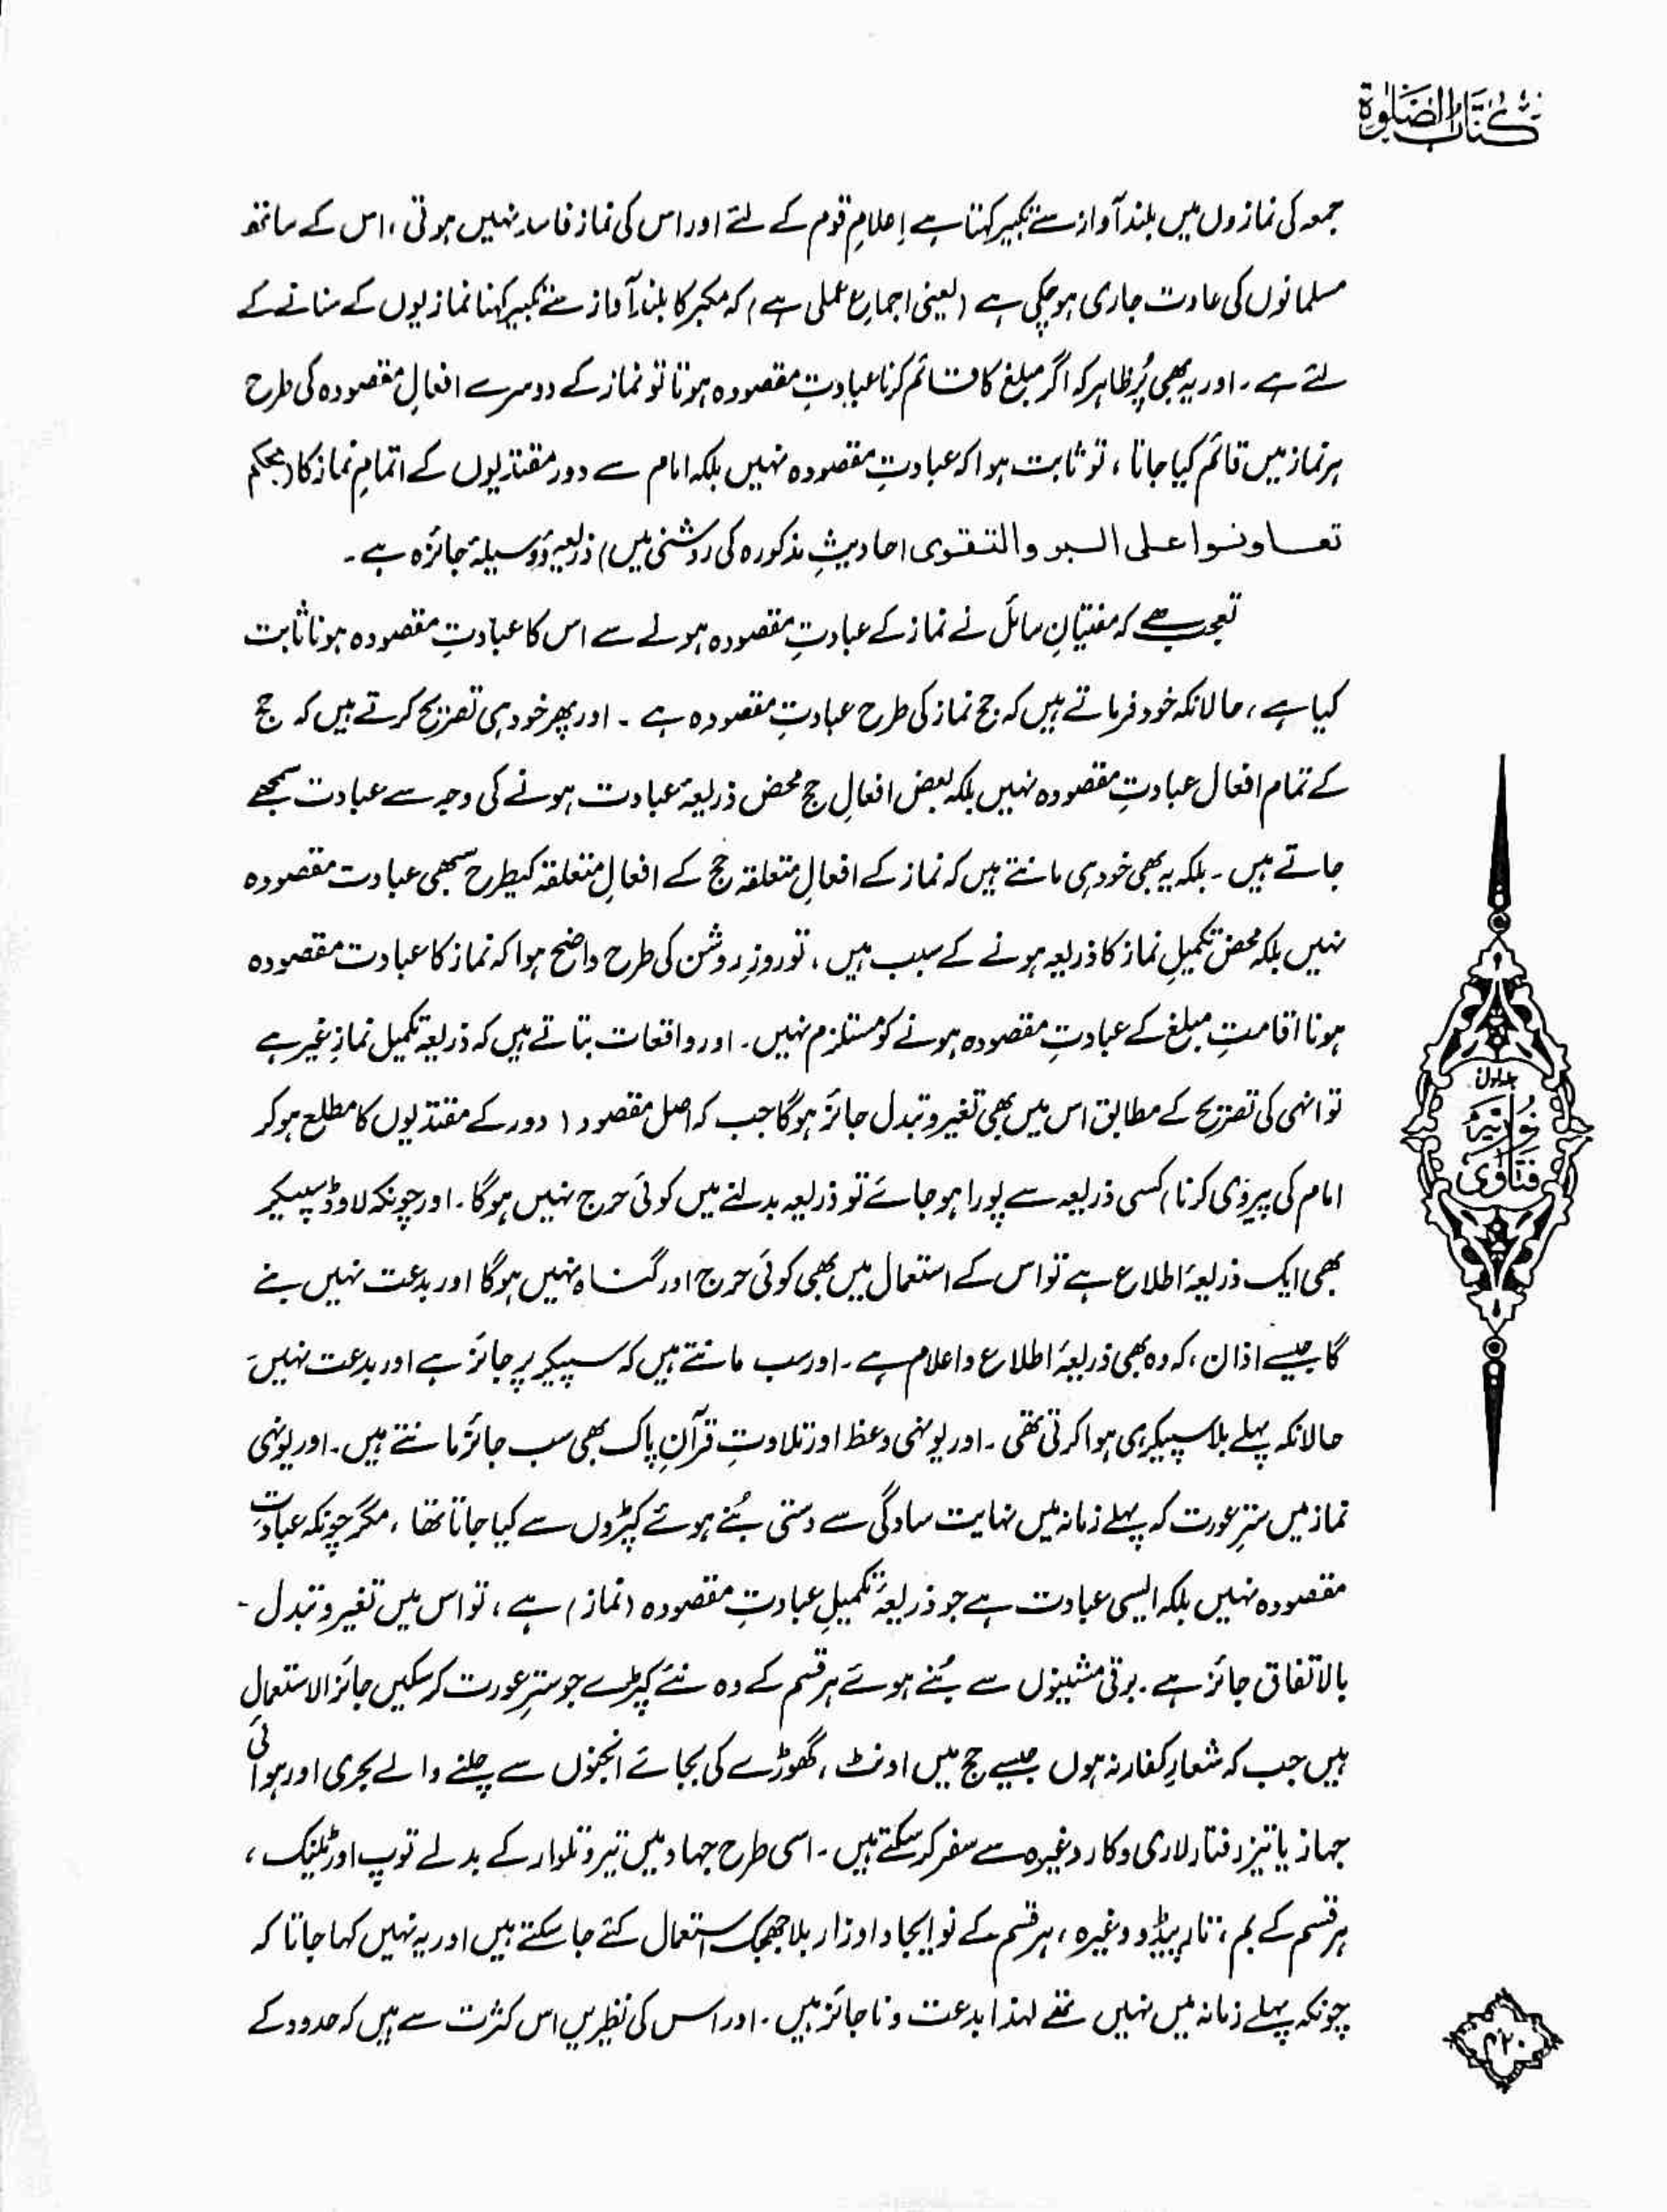 کتاب الصلوٰۃ
جمعہ کی نمازوں میں بلند آواز سے تکبیر کہتا ہے اِعلامِ قوم کے لئے اور اس کی نماز فاسد نہیں ہوتی ، اس کے ساتھ
مسلمانوں کی عادت جاری ہوچکی ہے (یعنی اجماعِ عملی ہے) کہ مکبر کا بلند آواز سے تکبیر کہنا نمازیوں کے سنانے کے
لئے ہے ۔ اور یہ بھی پُرظاہر کہ اگر مبلغ کا قائم کرنا عبادتِ مقصودہ ہوتا تو نماز کے دوسرے افعالِ مقصودہ کی طرح
ہر نماز میں قائم کیا جاتا ، تو ثابت ہوا کہ عبادتِ مقصودہ نہیں بلکہ امام سے دور مقتدیوں کے اتمامِ نماز کا (بحکم
تعاونوا علی البر والتقوی احادیثِ مذکورہ کی روشنی میں) ذریعہ و وسیلۂ جائزہ ہے ۔
تعجب ہے کہ مفتیانِ سائل نے نماز کے عبادتِ مقصودہ ہونے سے اس کا عبادتِ مقصودہ ہونا ثابت
کیا ہے ، حالانکہ خود فرماتے ہیں کہ حج نماز کی طرح عبادتِ مقصودہ ہے ۔ اور پھر خود ہی تصریح کرتے ہیں کہ حج
کے تمام افعال عبادتِ مقصودہ نہیں بلکہ بعض افعالِ حج محض ذریعۂ عبادت ہونے کی وجہ سے عبادت سمجھے
جاتے ہیں ۔ بلکہ یہ بھی خود ہی مانتے ہیں کہ نماز کے افعالِ متعلقہ حج کے افعالِ متعلقہ کیطرح سبھی عبادت مقصودہ
نہیں بلکہ محض تکمیلِ نماز کا ذریعہ ہونے کے سبب ہیں ، تو روزِ روشن کی طرح واضح ہوا کہ نماز کا عبادت مقصودہ
ہونا اقامتِ مبلغ کے عبادتِ مقصودہ ہونے کو مستلزم نہیں ۔ اور واقعات بتاتے ہیں کہ ذریعۂ تکمیل نمازِ غیر ہے
تو انہی کی تصریح کے مطابق اس میں بھی تغیر و تبدل جائز ہوگا جب کہ اصل مقصود (دور کے مقتدیوں کا مطلع ہوکر
امام کی پیروی کرنا) کسی ذریعہ سے پورا ہو جائے تو ذریعہ بدلنے میں کوئی حرج نہیں ہوگا ۔ اور چونکہ لاؤڈ سپیکر
بھی ایک ذریعۂ اطلاع ہے تو اس کے استعمال میں بھی کوئی حرج اور گناہ نہیں ہوگا اور بدعت نہیں بنے
گا جیسے اذان ، کہ وہ بھی ذریعۂ اطلاع و اعلام ہے ۔ اور سب مانتے ہیں کہ سپیکر پر جائز ہے اور بدعت نہیں
حالانکہ پہلے بلا سپیکر ہی ہوا کرتی تھی ۔ اور یونہی وعظ اور تلاوتِ قرآنِ پاک بھی سب جائز مانتے ہیں ۔ اور یونہی
نماز میں سترِ عورت کہ پہلے زمانہ میں نہایت سادگی سے دستی بُنے ہوئے کپڑوں سے کیا جاتا تھا ، مگر چونکہ عبادتِ
مقصودہ نہیں بلکہ ایسی عبادت ہے جو ذریعۂ تکمیلِ عبادتِ مقصودہ (نماز) ہے ، تو اس میں تغیر و تبدل -
بالاتفاق جائز ہے ۔ برقی مشینوں سے بُنے ہوئے ہر قسم کے وہ نئے کپڑے جو سترِ عورت کرسکیں جائز الاستعمال
ہیں جب کہ شعارِ کفار نہ ہوں جیسے حج میں اونٹ ، گھوڑے کی بجائے انجنوں سے چلنے والے بحری اور ہوائی
جہاز یا تیز رفتار لاری و کار وغیرہ سے سفر کرسکتے ہیں ۔ اسی طرح جہاد میں تیر و تلوار کے بدلے توپ اور ٹینک ،
ہر قسم کے بم ، تارپیڈو وغیرہ ، ہر قسم کے نو ایجاد اوزار بلا جھجک استعمال کئے جا سکتے ہیں اور یہ نہیں کہا جاتا کہ
چونکہ پہلے زمانہ میں نہیں تھے لہذا بدعت و ناجائز ہیں ۔ اور اس کی نظیریں اس کثرت سے ہیں کہ حدود کے
جلد اول
فتاوی نوریہ
۴۲۰